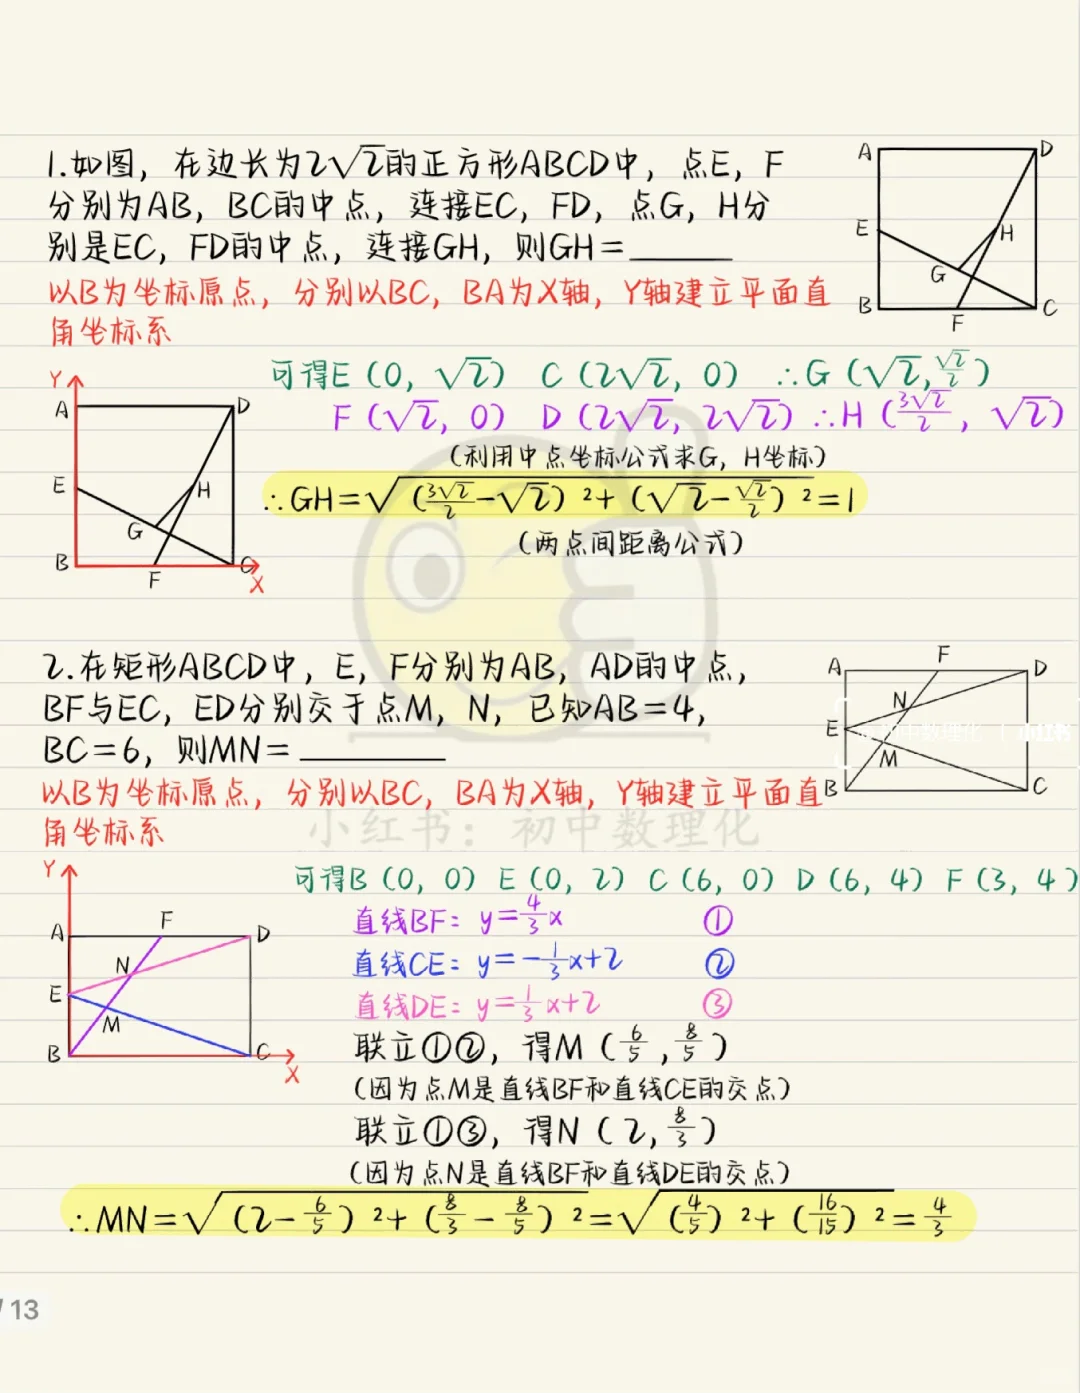 1.如图，在边长为2√2的正方形ABCD中，点E，F
分别为AB，BC的中点，连接EC，FD，点G，H分
别是EC，FD的中点，连接GH，则GH=______
A D E H G B F C
以B为坐标原点，分别以BC，BA为X轴，Y轴建立平面直
角坐标系
Y A D E H G B F C X
可得E（0，√2） C（2√2，0） ∴G（√2，√2/2）
F（√2，0） D（2√2，2√2）∴H（3√2/2，√2）
（利用中点坐标公式求G，H坐标）
∴GH=√（3√2/2-√2）²+（√2-√2/2）²=1
（两点间距离公式）
2.在矩形ABCD中，E，F分别为AB，AD的中点，
BF与EC，ED分别交于点M，N，已知AB=4，
BC=6，则MN=________
A F D N E M B C
初中数理化 小红书
以B为坐标原点，分别以BC，BA为X轴，Y轴建立平面直
角坐标系
小红书：初中数理化
Y A F D N E M B C X
可得B（0，0）E（0，2）C（6，0）D（6，4）F（3，4）
直线BF：y=4/3x ①
直线CE：y=-1/3x+2 ②
直线DE：y=1/3x+2 ③
联立①②，得M（6/5，8/5）
（因为点M是直线BF和直线CE的交点）
联立①③，得N（2，8/3）
（因为点N是直线BF和直线DE的交点）
∴MN=√（2-6/5）²+（8/3-8/5）²=√（4/5）²+（16/15）²=4/3
/13